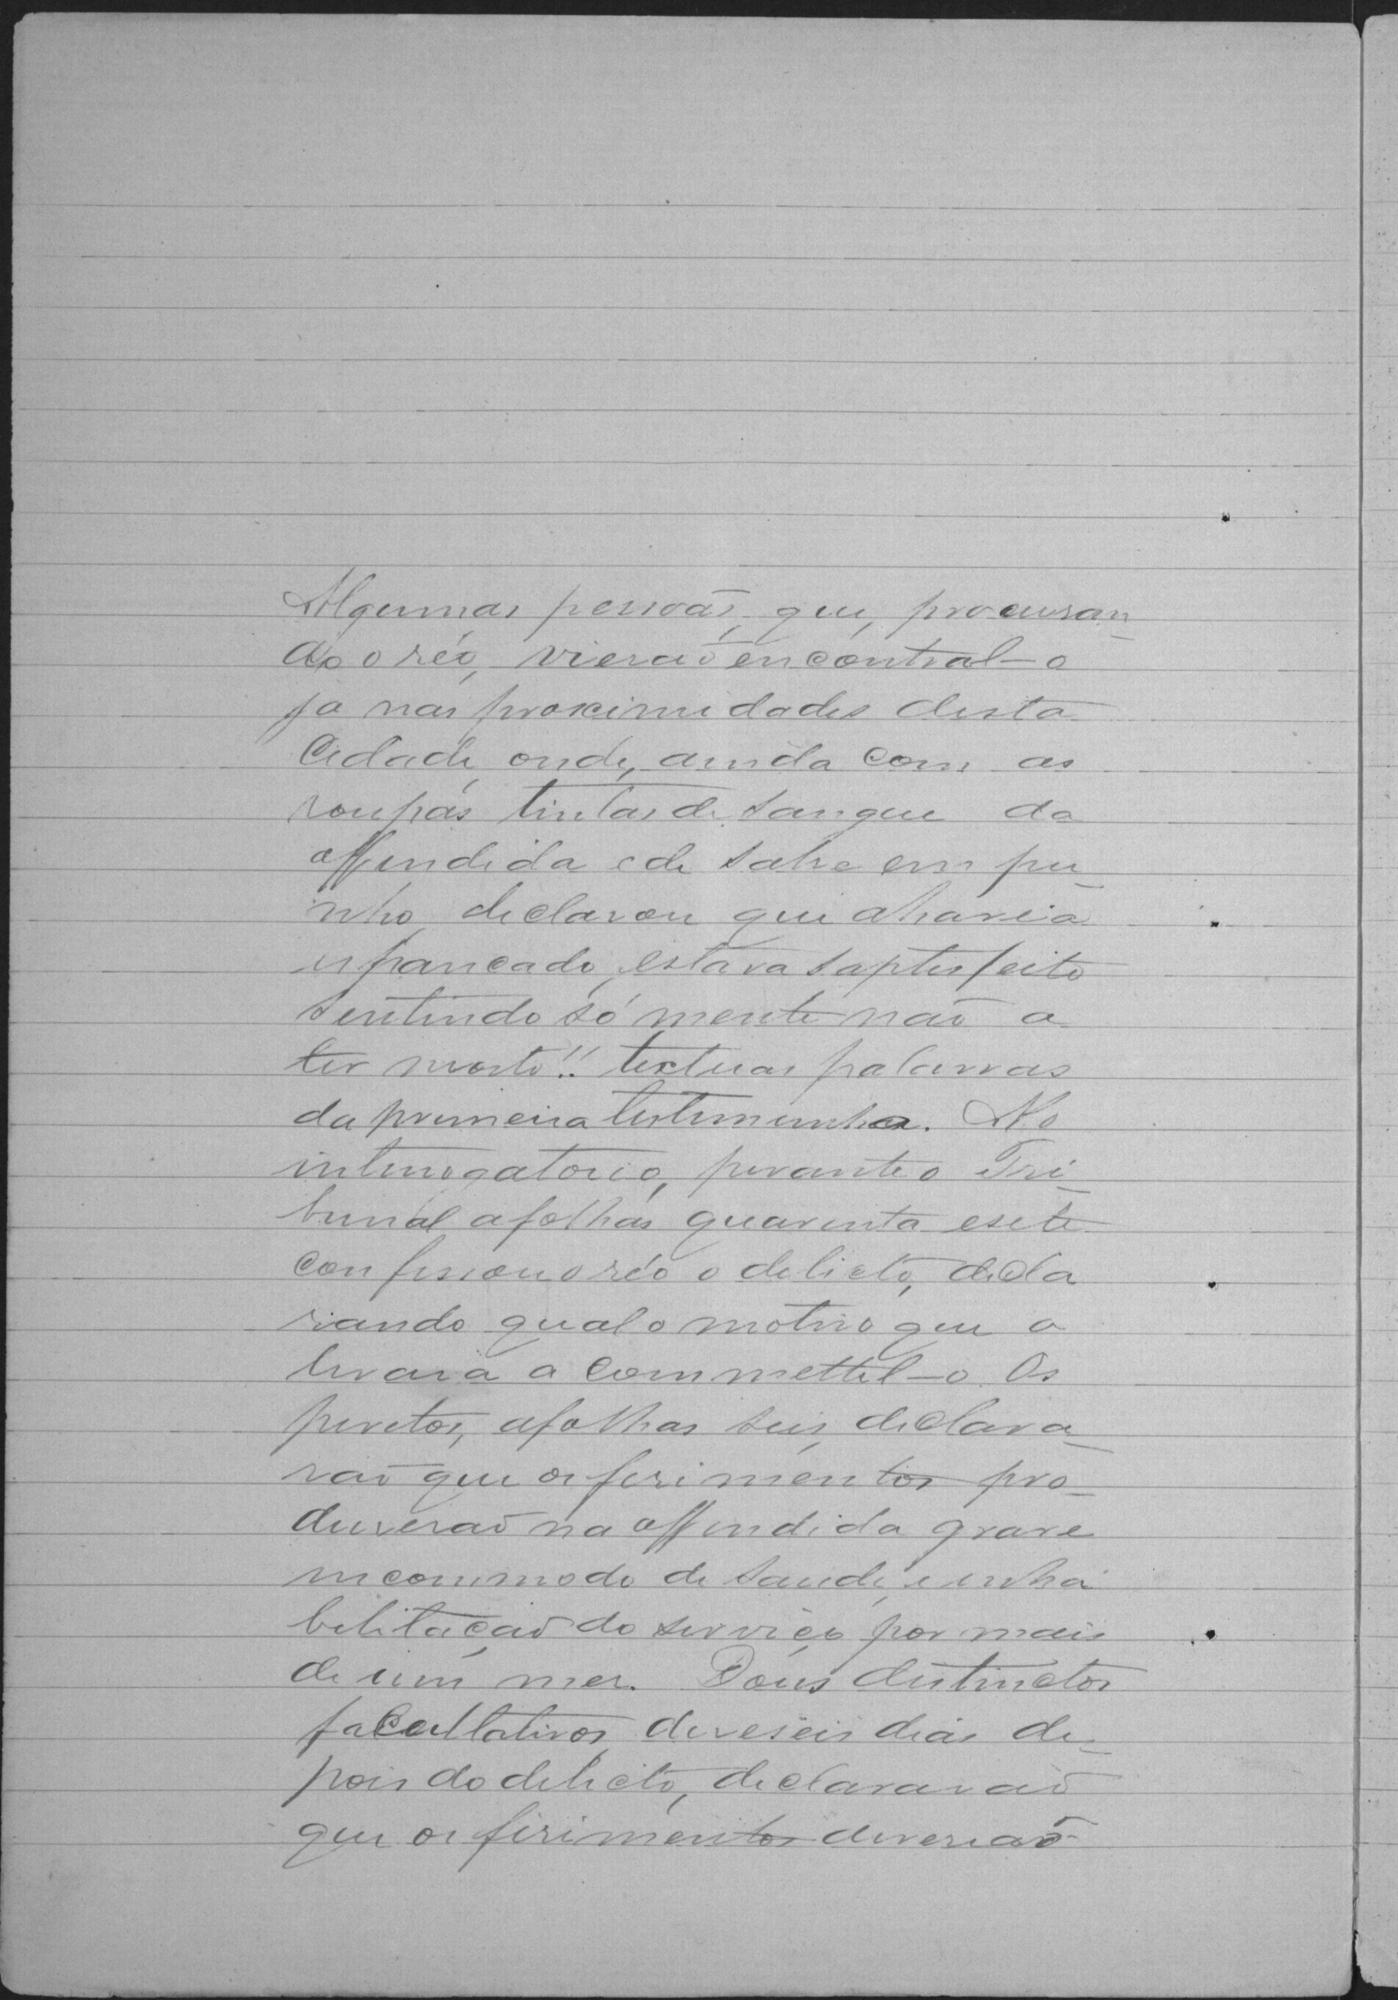 Algumas pessoas, que, procuran-
do o réo, vieraõ encontral-o
ja nas proximidades desta
Cidade, onde, ainda com as
roupas tintas de sangue da
offendida e de sabre em pu-
nho, declarou que a havia
espancado, estava saptisfeito
sentindo só mente naõ a
ter morto!! textuas palavras
da primeira testimunha. No
interrogatorio, perante o Tri-
bunal a folhas quarenta e sete
confessou o réo o delicto, decla
rando qual o motivo que o
levara a commettel-o. Os
peretos, a folhas seis, declara-
raõ que os ferimentos pro-
duseraõ na offendida grave
incommodo de saude, e inha
bilitaçaõ do serviço por mais
de um mez. Dous distinctos
facultativos, deseseis dias de-
pois do delicto, declararaõ
que os ferimentos deveraõ